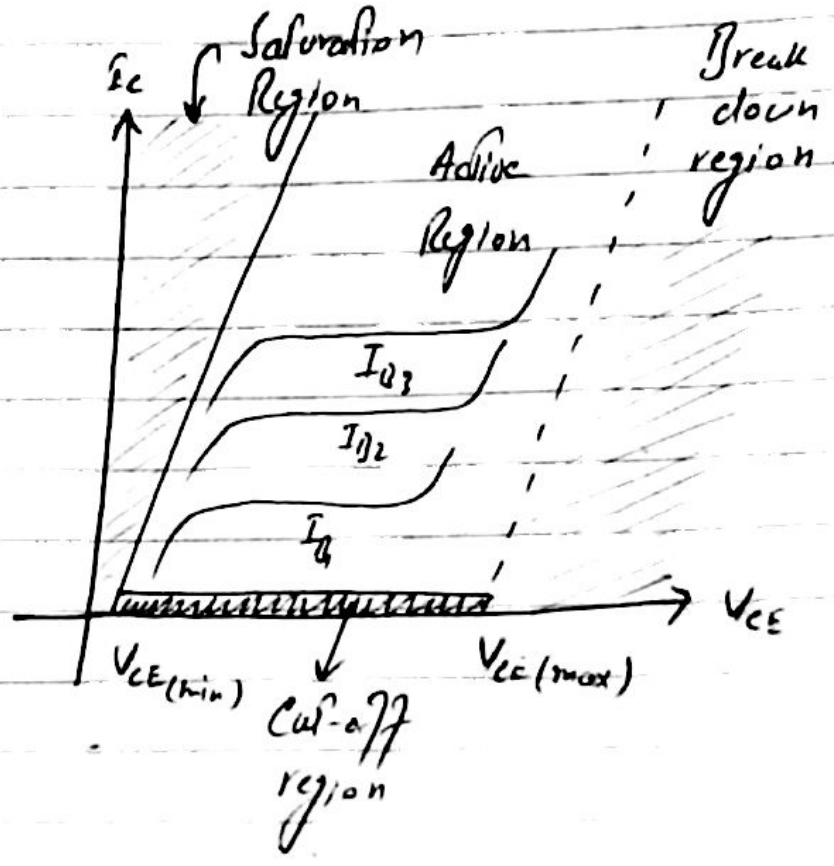 Saturation
Region
Ic
Break
down
region
Active
Region
IB3
IB2
IB1
VCE
VCE(min)
VCE(max)
Cut-off
region